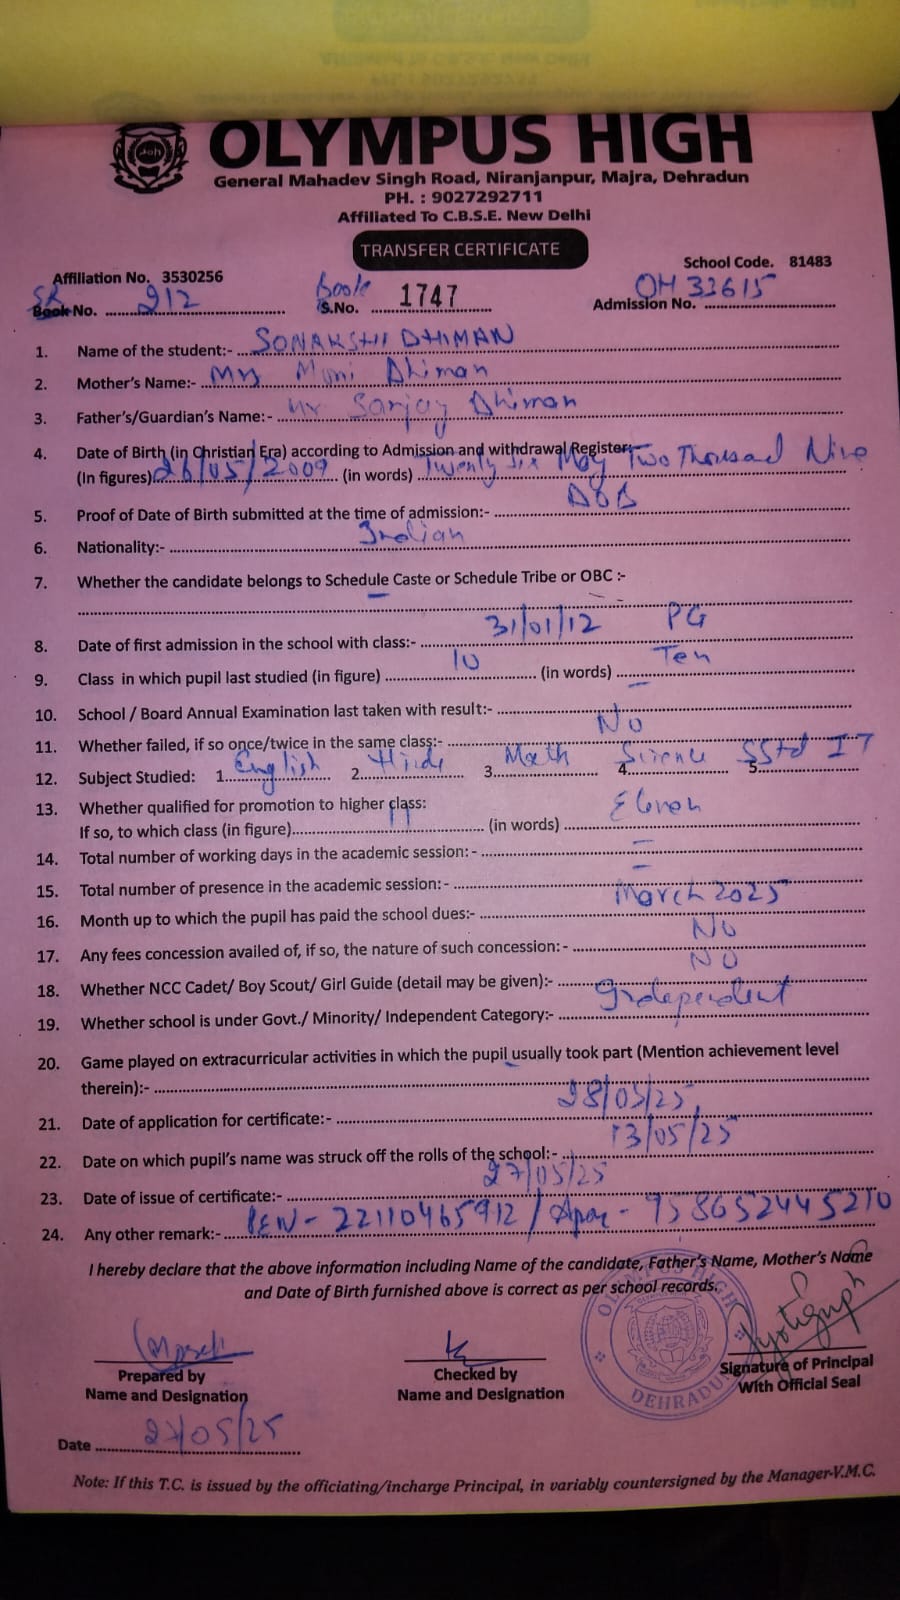 OLYMPUS HIGH
General Mahadev Singh Road, Niranjanpur, Majra, Dehradun
PH. : 9027292711
Affiliated To C.B.S.E. New Delhi
TRANSFER CERTIFICATE
Affiliation No. 3530256 School Code. 81483
SR Book No. 212 Book S.No. 1747 Admission No. OH 33615
1. Name of the student:- SONAKSHI DHIMAN
2. Mother's Name:- Mrs Muni Dhiman
3. Father's/Guardian's Name:- Mr Sanjay Dhiman
4. Date of Birth (in Christian Era) according to Admission and withdrawal Register:
(In figures) 26/05/2009 (in words) Twenty Six May Two Thousand Nine
5. Proof of Date of Birth submitted at the time of admission:- DOB
6. Nationality:- Indian
7. Whether the candidate belongs to Schedule Caste or Schedule Tribe or OBC :-
8. Date of first admission in the school with class:- 31/01/12 PG
9. Class in which pupil last studied (in figure) 10 (in words) Ten
10. School / Board Annual Examination last taken with result:-
11. Whether failed, if so once/twice in the same class:- No
12. Subject Studied: 1. English 2. Hindi 3. Math 4. Science 5. SStd IT
13. Whether qualified for promotion to higher class:
If so, to which class (in figure) 11 (in words)
14. Total number of working days in the academic session: -
15. Total number of presence in the academic session:-
16. Month up to which the pupil has paid the school dues:- March 2025
17. Any fees concession availed of, if so, the nature of such concession: - No
18. Whether NCC Cadet/ Boy Scout/ Girl Guide (detail may be given):- No
19. Whether school is under Govt./ Minority/ Independent Category:- Independent
20. Game played on extracurricular activities in which the pupil usually took part (Mention achievement level
therein):-
21. Date of application for certificate:- 28/03/25
22. Date on which pupil's name was struck off the rolls of the school:- 13/05/25
23. Date of issue of certificate:- 27/05/25
24. Any other remark:- PEN - 22110465912 / Apar - 958652445210
I hereby declare that the above information including Name of the candidate, Father's Name, Mother's Name
and Date of Birth furnished above is correct as per school records.
OLYMPUS HIGH
DEHRADUN
Prepared by Checked by Signature of Principal
Name and Designation Name and Designation With Official Seal
Date 27/05/25
Note: If this T.C. is issued by the officiating/incharge Principal, in variably countersigned by the Manager-V.M.C.